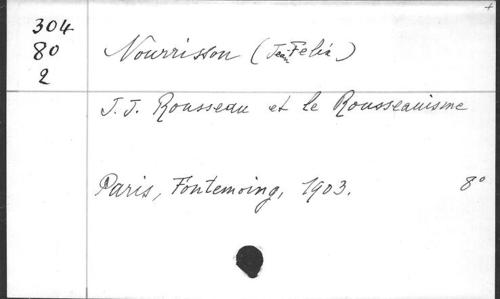 304
80
2
Nourrisson (Jean-Felix)
J. J. Rousseau et le Rousseauisme
Paris, Fontemoing, 1903. 8°